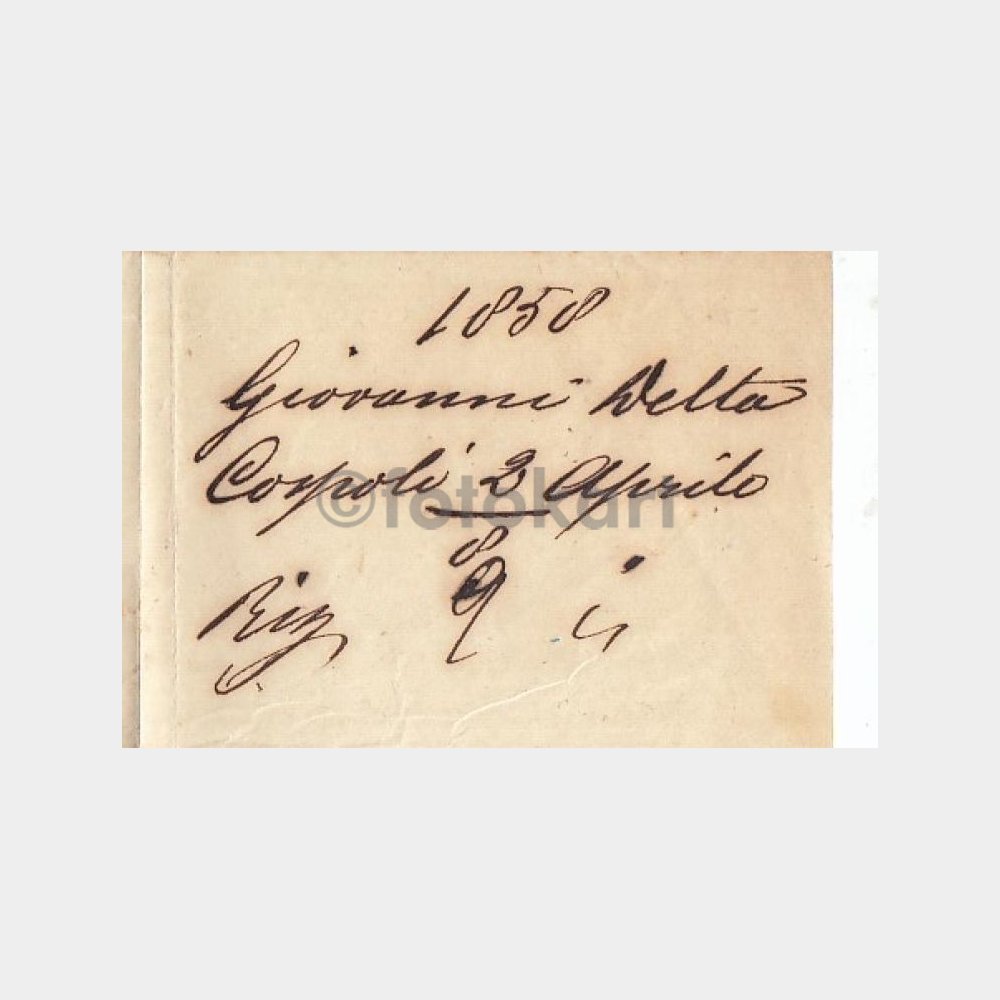 1858
Giovanni Delta
Cospoli 2 Aprile
8
Riz 9
©fotokart